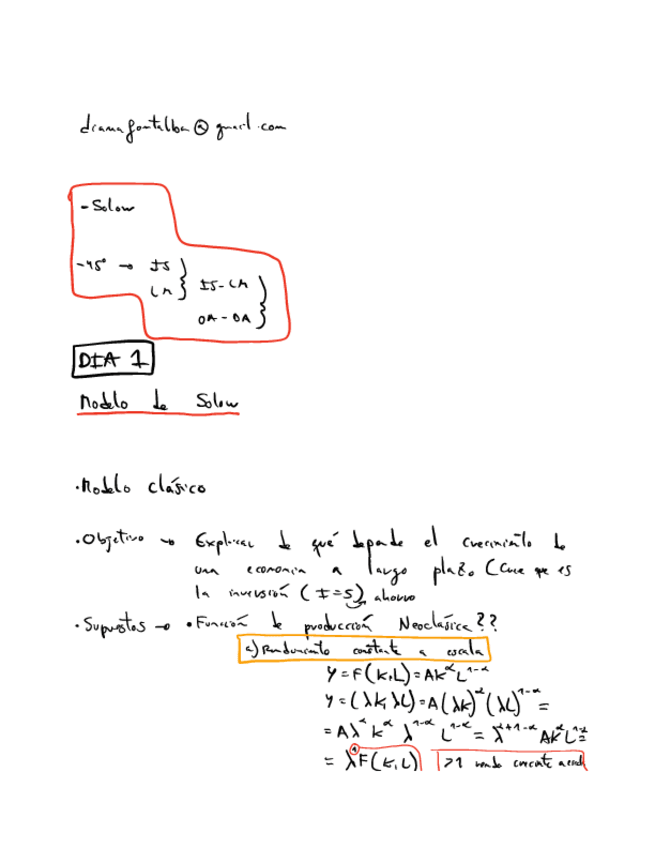 dianafontalba@gmail.com
- Solow
- 45° → IS
LM
IS-LM
OA-DA
DIA 1
Modelo de Solow
· Modelo clásico
· Objetivo → Explicar de qué depende el crecimiento de
una economia a largo plazo (Cree que es
la inversión (I=S) ahorro
· Supuestos → · Función de producción Neoclásica??
a) Rendimiento constante a escala
Y=F(K,L)=AK^α L^1-α
Y=(λK,λL)=A(λK)^α(λL)^1-α =
=Aλ^α K^α λ^1-α L^1-α = λ^α+1-α AK^α L^1-α =
= λ^1 F(K,L) >1 rende creciente a escal